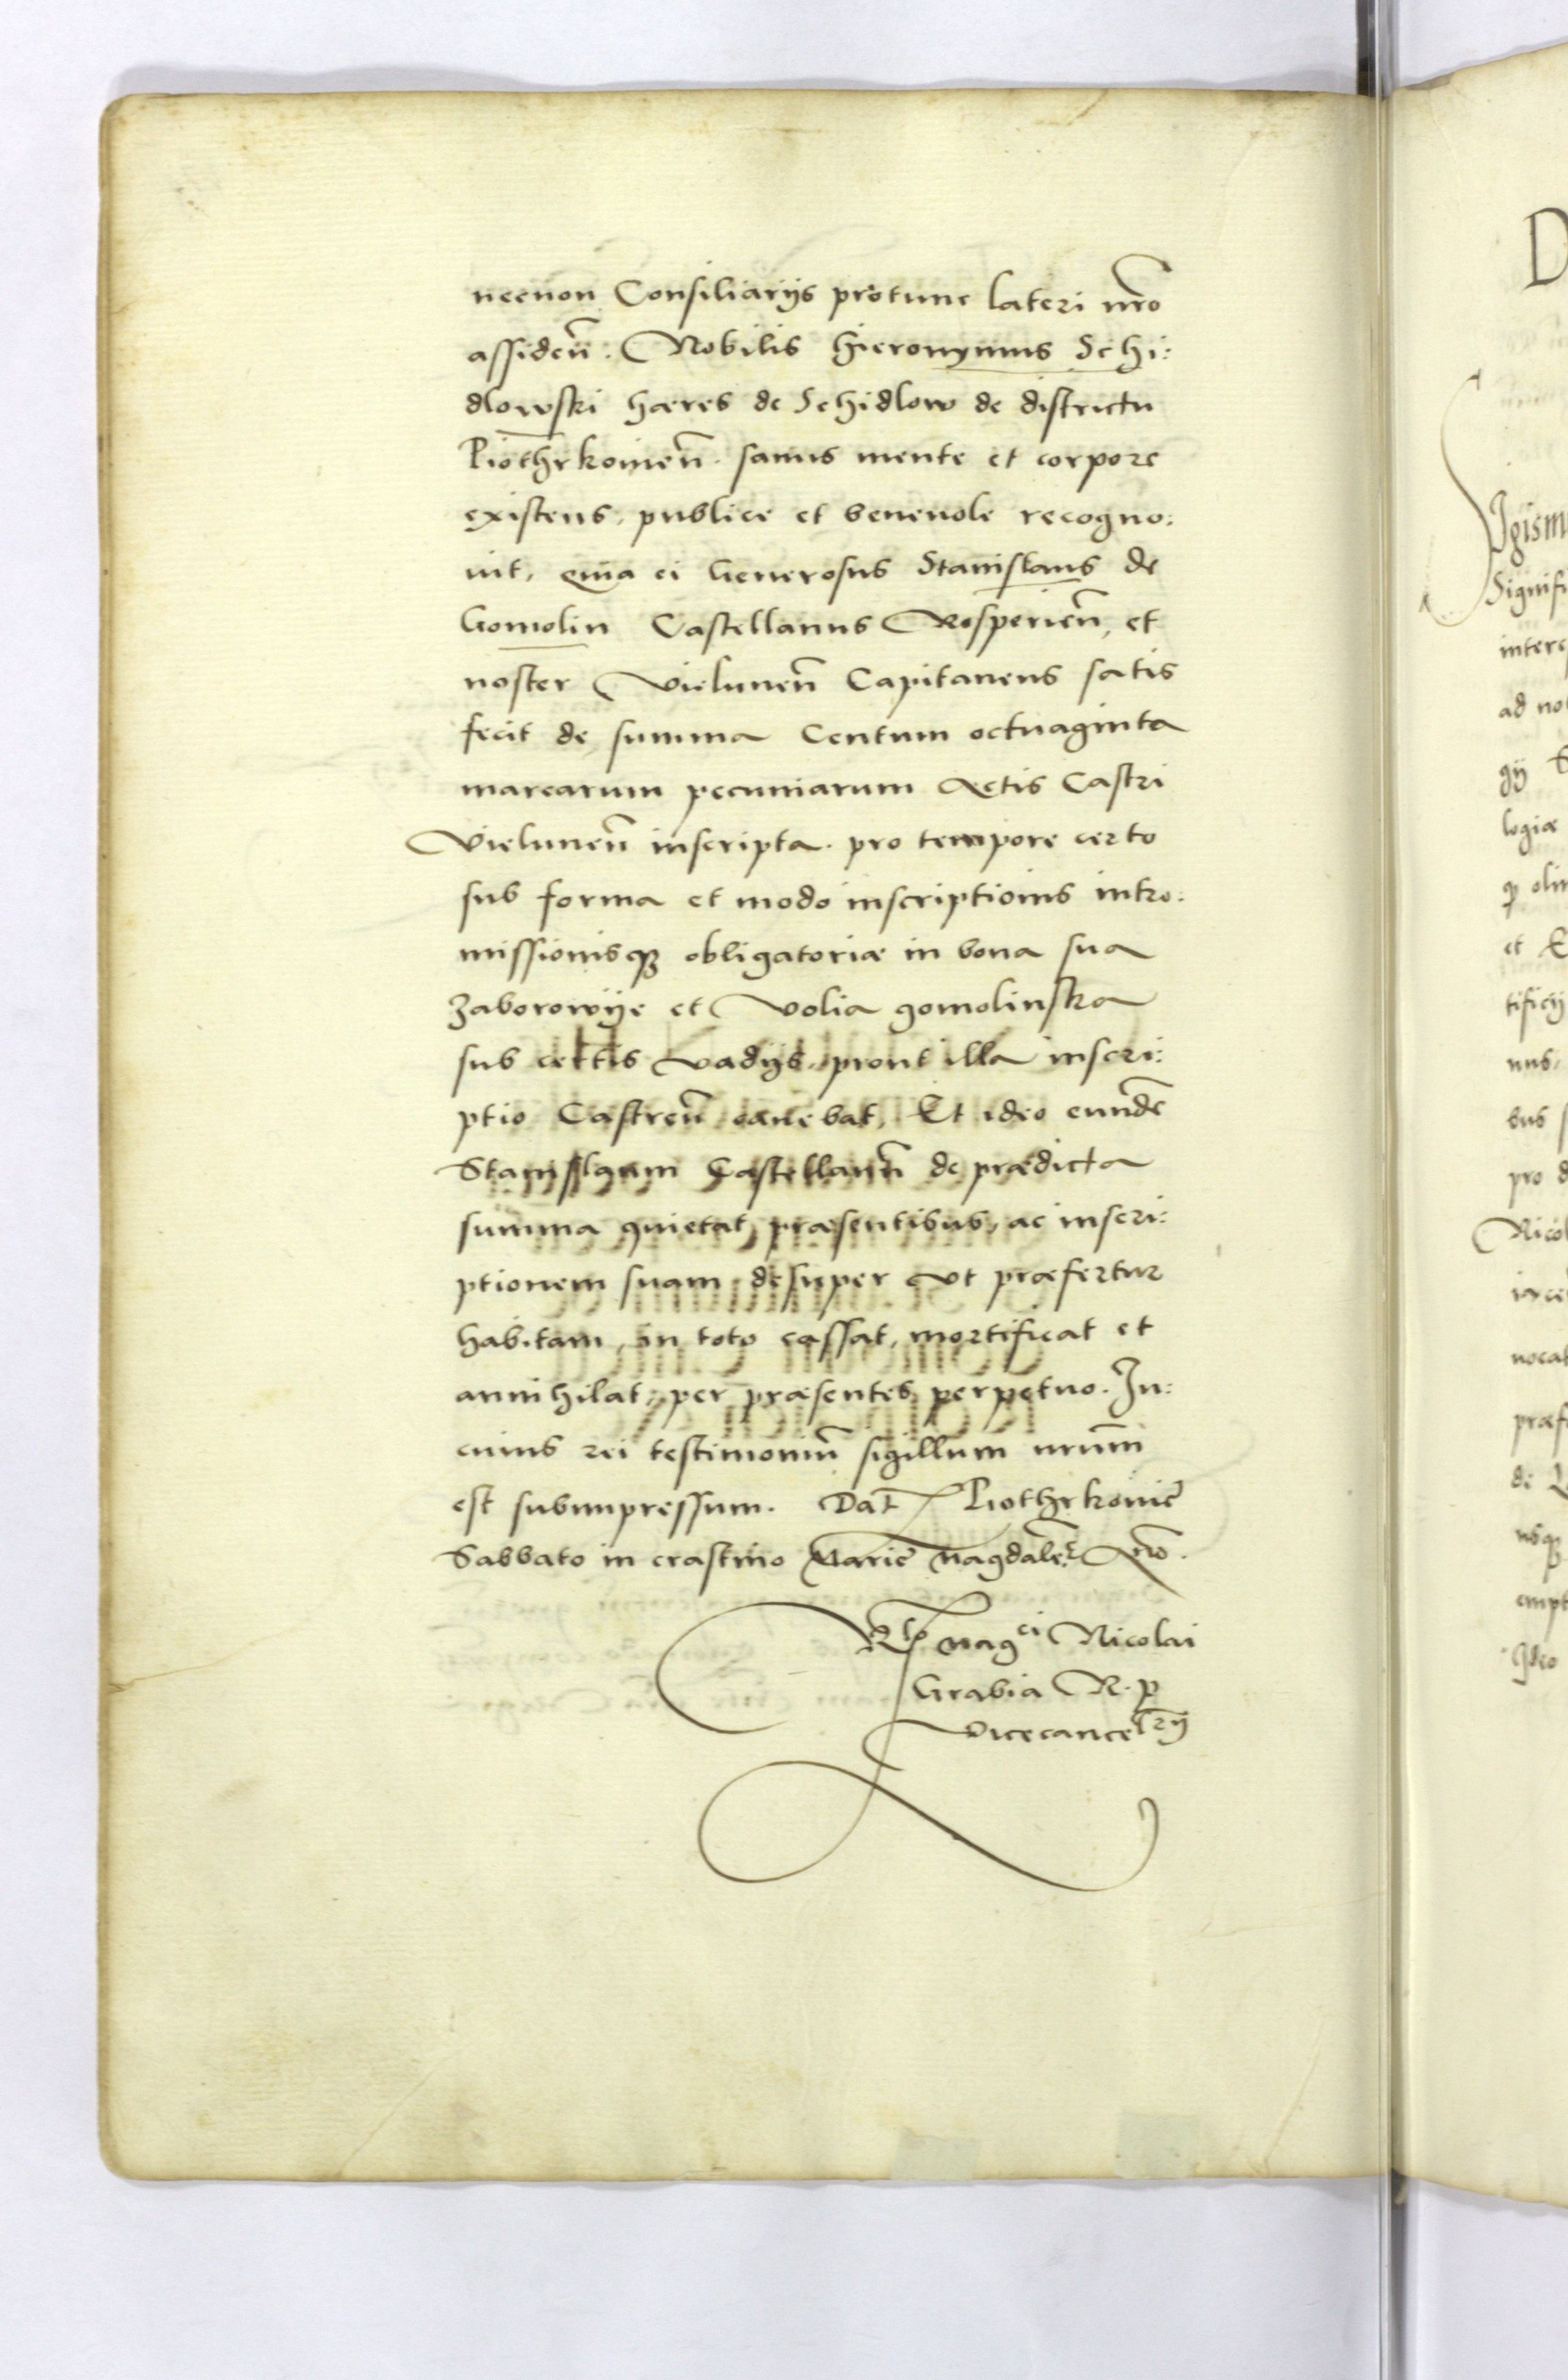 necnon Consiliarijs protunc lateri nr̃o
assideñ. Nobilis Hieronymus Schi:
dlowski hæres de Schidlow de districtu
Piothrkouieñ. sanus mente et corpore
existens, publice et beneuole recogno:
uit, quia ei Generosus Stanislaus de
Gomolin Castellanus Rosperieñ, et
noster Vieluneñ Capitaneus satis
fecit de summa Centum octuaginta
marcarum pecuniarum Actis Castri
Vieluneñ inscripta. pro tempore certo
sub forma et modo inscriptionis intro:
missionisq3 obligatoriæ in bona sua
Zaborowije et Volia gomolinska
sub certis vadijs, prout illa inscri:
ptio Castreñ canebat, Et ideo eundẽ
Stanislaum Castellanũ de prædicta
summa quietat præsentibus, ac inscri:
ptionem suam desuper vt præfertur
habitam, in toto cassat, mortificat et
annihilat, per præsentes perpetuo. In:
cuius rei testimoniũ sigillum nrũm
est subimpressum. Dat̃ Piothrkouiẽ
Sabbato in crastino Mariẽ Magdalẽ: Año.
Rło Mag^ci Nicolai
Grabia R. p
Vicecancel̃rij
D
Sigism
Signifi
inter
ad no
gij S
logiæ
q olim
et E
tificij
nus,
bus f
pro d
Nicol
iace
nocat
præf
de L
nisq3
empt
Ideo